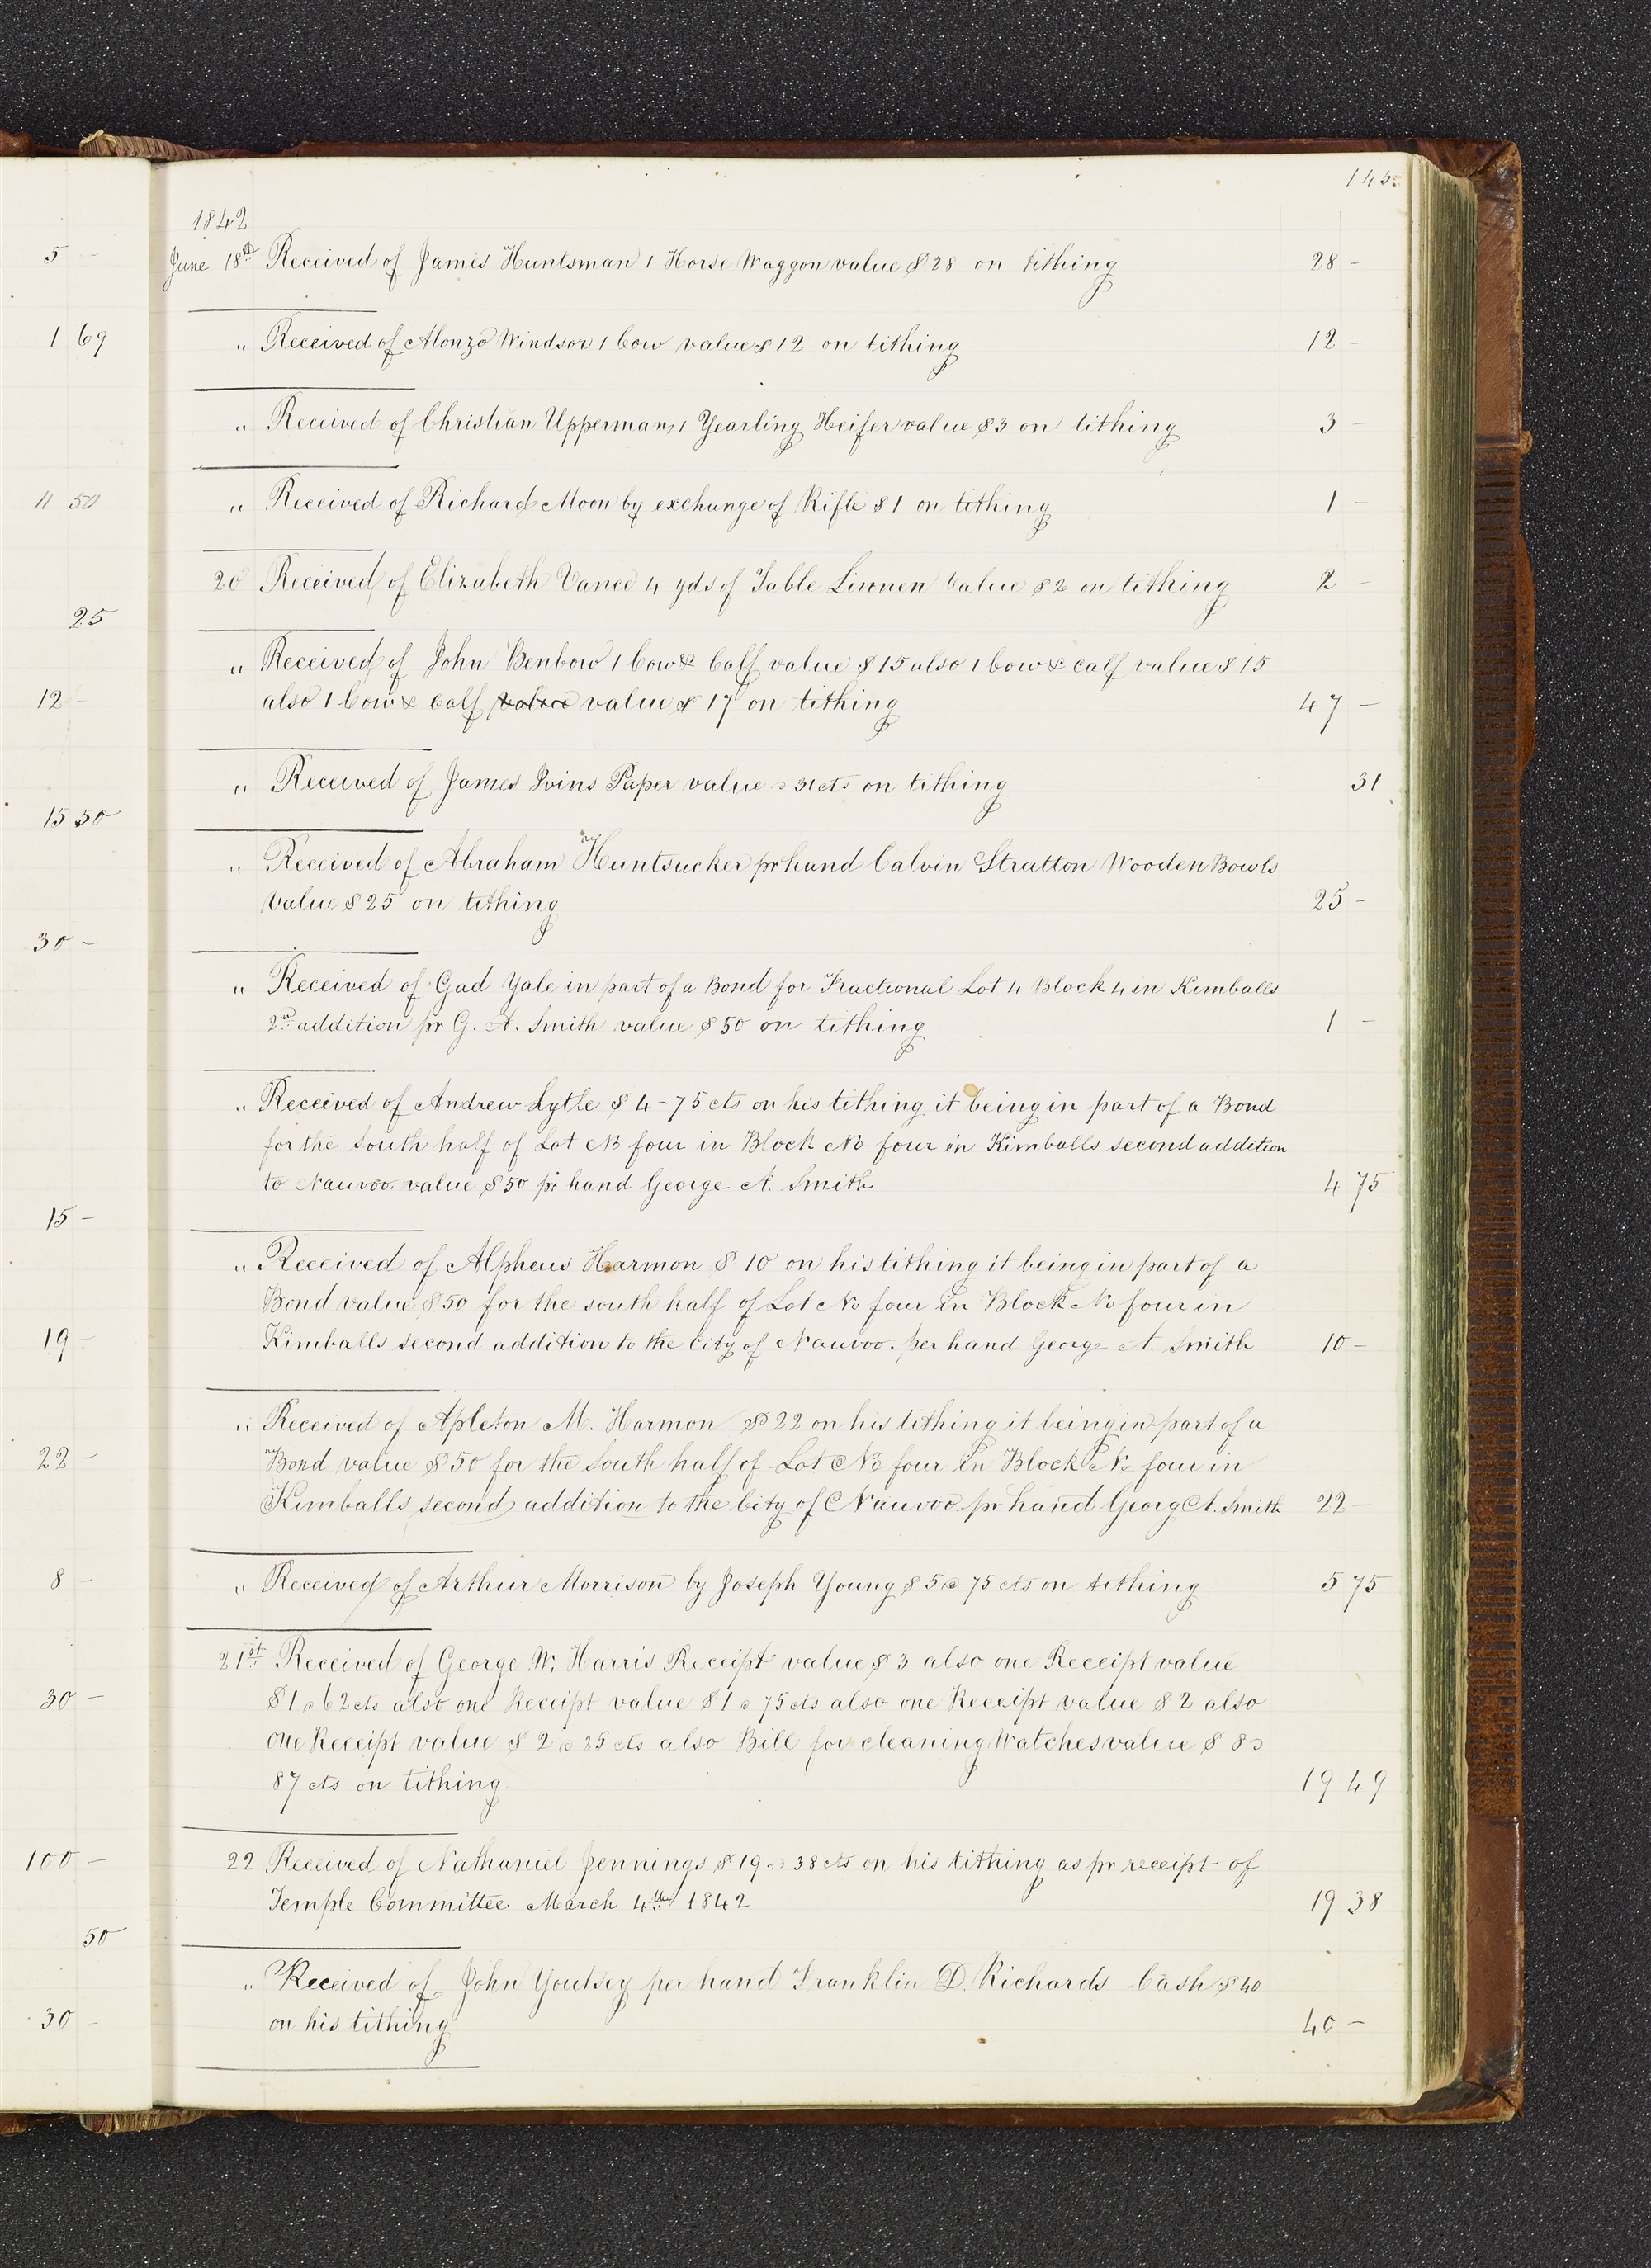 145.
1842
5 - June 18th Received of James Huntsman 1 Horse Waggon value $28 on tithing 28 -
1 69 " Received of Alonzo Windsor 1 Cow value $12 on tithing 12 -
" Received of Christian Upperman 1 Yearling Heifer value $3 on tithing 3 -
11 50 " Received of Richard Moon by exchange of Rifle $1 on tithing 1 -
20 Received of Elizabeth Vance 4 yds of Table Linnen Value $2 on tithing 2 -
25
" Received of John Benbow 1 Cow & Calf value $15 also 1 Cow & calf value $15
12 - also 1 Cow & calf value $17 on tithing 47 -
" Received of James Ivins Paper value 31cts on tithing 31
15 50
" Received of Abraham Huntsucker pr hand Calvin Stratton Wooden Bowls
Value $25 on tithing 25 -
30 -
" Received of Gad Yale in part of a Bond for Fractional Lot 4 Block 4 in Kimballs
2nd addition pr G. A. Smith value $50 on tithing 1 -
" Received of Andrew Lytle $4-75cts on his tithing it being in part of a Bond
for the South half of Lot No four in Block No four in Kimballs second addition
to Nauvoo. value $50 pr hand George A. Smith 4 75
15 -
" Received of Alpheus Harmon $10 on his tithing it being in part of a
Bond value $50 for the south half of Lot No four in Block No four in
19 - Kimballs second addition to the City of Nauvoo. per hand George A. Smith 10 -
" Received of Apleton M. Harmon $22 on his tithing it being in part of a
22 - Bond value $50 for the South half of Lot No four in Block No four in
Kimballs second addition to the City of Nauvoo pr hand Georg A. Smith 22 -
8 - " Received of Arthur Morrison by Joseph Young $5 75cts on tithing 5 75
21st Received of George W. Harris Receipt value $3 also one Receipt value
30 - $1 62cts also one Receipt value $1 75cts also one Receipt value $2 also
one Receipt value $2 25cts also Bill for cleaning Watches value $8
87cts on tithing 19 49
100 - 22 Received of Nathaniel Jennings $19 38cts on his tithing as pr receipt of
Temple Committee March 4th 1842 19 38
50
" Received of John Youtsey per hand Franklin D. Richards Cash $40
30 - on his tithing 40 -